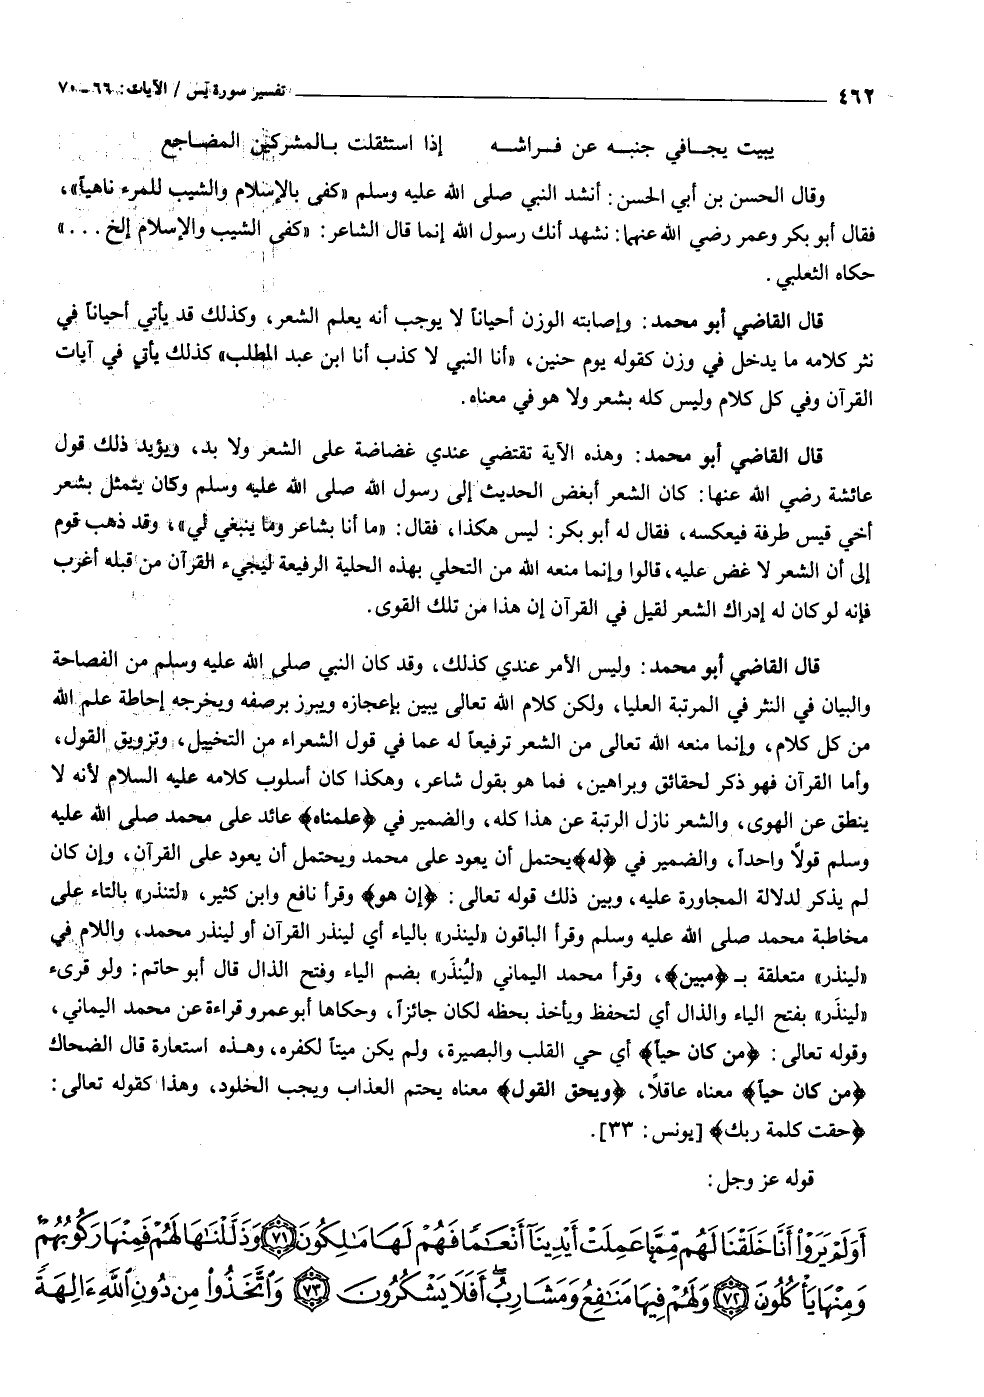 ٤٦٢ تفسير سورة يس / الآيات: ٦٦ - ٧٠
يبيت يجـافي جنبـه عن فـراشـه إذا استثقلت بـالمشركين المضـاجع
وقال الحسن بن أبي الحسن: أنشد النبي صلى الله عليه وسلم «كفى بالإسلام والشيب للمرء ناهياً»،
فقال أبو بكر وعمر رضي الله عنهما: نشهد أنك رسول الله إنما قال الشاعر: «كفى الشيب والإسلام إلخ . . .»
حكاه الثعلبي.
قال القاضي أبو محمد: وإصابته الوزن أحياناً لا يوجب أنه يعلم الشعر، وكذلك قد يأتي أحياناً في
نثر كلامه ما يدخل في وزن كقوله يوم حنين، «أنا النبي لا كذب أنا ابن عبد المطلب» كذلك يأتي في آيات
القرآن وفي كل كلام وليس كله بشعر ولا هو في معناه.
قال القاضي أبو محمد: وهذه الآية تقتضي عندي غضاضة على الشعر ولا بد، ويؤيد ذلك قول
عائشة رضي الله عنها: كان الشعر أبغض الحديث إلى رسول الله صلى الله عليه وسلم وكان يتمثل بشعر
أخي قيس طرفة فيعكسه، فقال له أبو بكر: ليس هكذا، فقال: «ما أنا بشاعر وما ينبغي لي»، وقد ذهب قوم
إلى أن الشعر لا غض عليه، قالوا وإنما منعه الله من التحلي بهذه الحلية الرفيعة ليجيء القرآن من قبله أغرب
فإنه لو كان له إدراك الشعر لقيل في القرآن إن هذا من تلك القوى.
قال القاضي أبو محمد: وليس الأمر عندي كذلك، وقد كان النبي صلى الله عليه وسلم من الفصاحة
والبيان في النثر في المرتبة العليا، ولكن كلام الله تعالى يبين بإعجازه ويبرز برصفه ويخرجه إحاطة علم الله
من كل كلام، وإنما منعه الله تعالى من الشعر ترفيعاً له عما في قول الشعراء من التخييل، وتزويق القول،
وأما القرآن فهو ذكر لحقائق وبراهين، فما هو بقول شاعر، وهكذا كان أسلوب كلامه عليه السلام لأنه لا
ينطق عن الهوى، والشعر نازل الرتبة عن هذا كله، والضمير في ﴿علمناه﴾ عائد على محمد صلى الله عليه
وسلم قولاً واحداً، والضمير في ﴿له﴾يحتمل أن يعود على محمد ويحتمل أن يعود على القرآن، وإن كان
لم يذكر لدلالة المجاورة عليه، وبين ذلك قوله تعالى: ﴿إن هو﴾ وقرأ نافع وابن كثير، «لتنذر» بالتاء على
مخاطبة محمد صلى الله عليه وسلم وقرأ الباقون «لينذر» بالياء أي لينذر القرآن أو لينذر محمد، واللام في
«لينذر» متعلقة بـ ﴿مبين﴾، وقرأ محمد اليماني «ليُنذَر» بضم الياء وفتح الذال قال أبو حاتم: ولو قرىء
«لينذَر» بفتح الياء والذال أي لتحفظ ويأخذ بحظه لكان جائزاً، وحكاها أبو عمرو قراءة عن محمد اليماني،
وقوله تعالى: ﴿من كان حياً﴾ أي حي القلب والبصيرة، ولم يكن ميتاً لكفره، وهـذه استعارة قال الضحاك
﴿من كان حياً﴾ معناه عاقلاً، ﴿ويحق القول﴾ معناه يحتم العذاب ويجب الخلود، وهذا كقوله تعالى:
﴿حقت كلمة ربك﴾ [يونس: ٣٣].
قوله عز وجل:
أَوَلَمْ يَرَوْا أَنَّا خَلَقْنَا لَهُم مِّمَّا عَمِلَتْ أَيْدِينَا أَنْعَامًا فَهُمْ لَهَا مَالِكُونَ ٧١ وَذَلَّلْنَاهَا لَهُمْ فَمِنْهَا رَكُوبُهُمْ
وَمِنْهَا يَأْكُلُونَ ٧٢ وَلَهُمْ فِيهَا مَنَافِعُ وَمَشَارِبُ أَفَلَا يَشْكُرُونَ ٧٣ وَاتَّخَذُوا مِن دُونِ اللَّهِ ءَالِهَةً